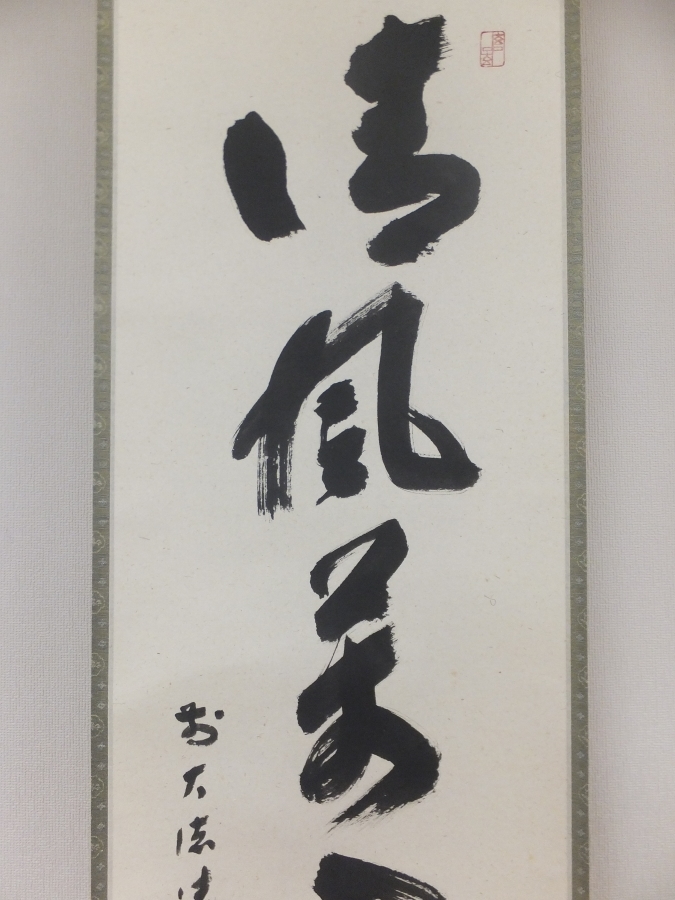 清風萬
前大徳